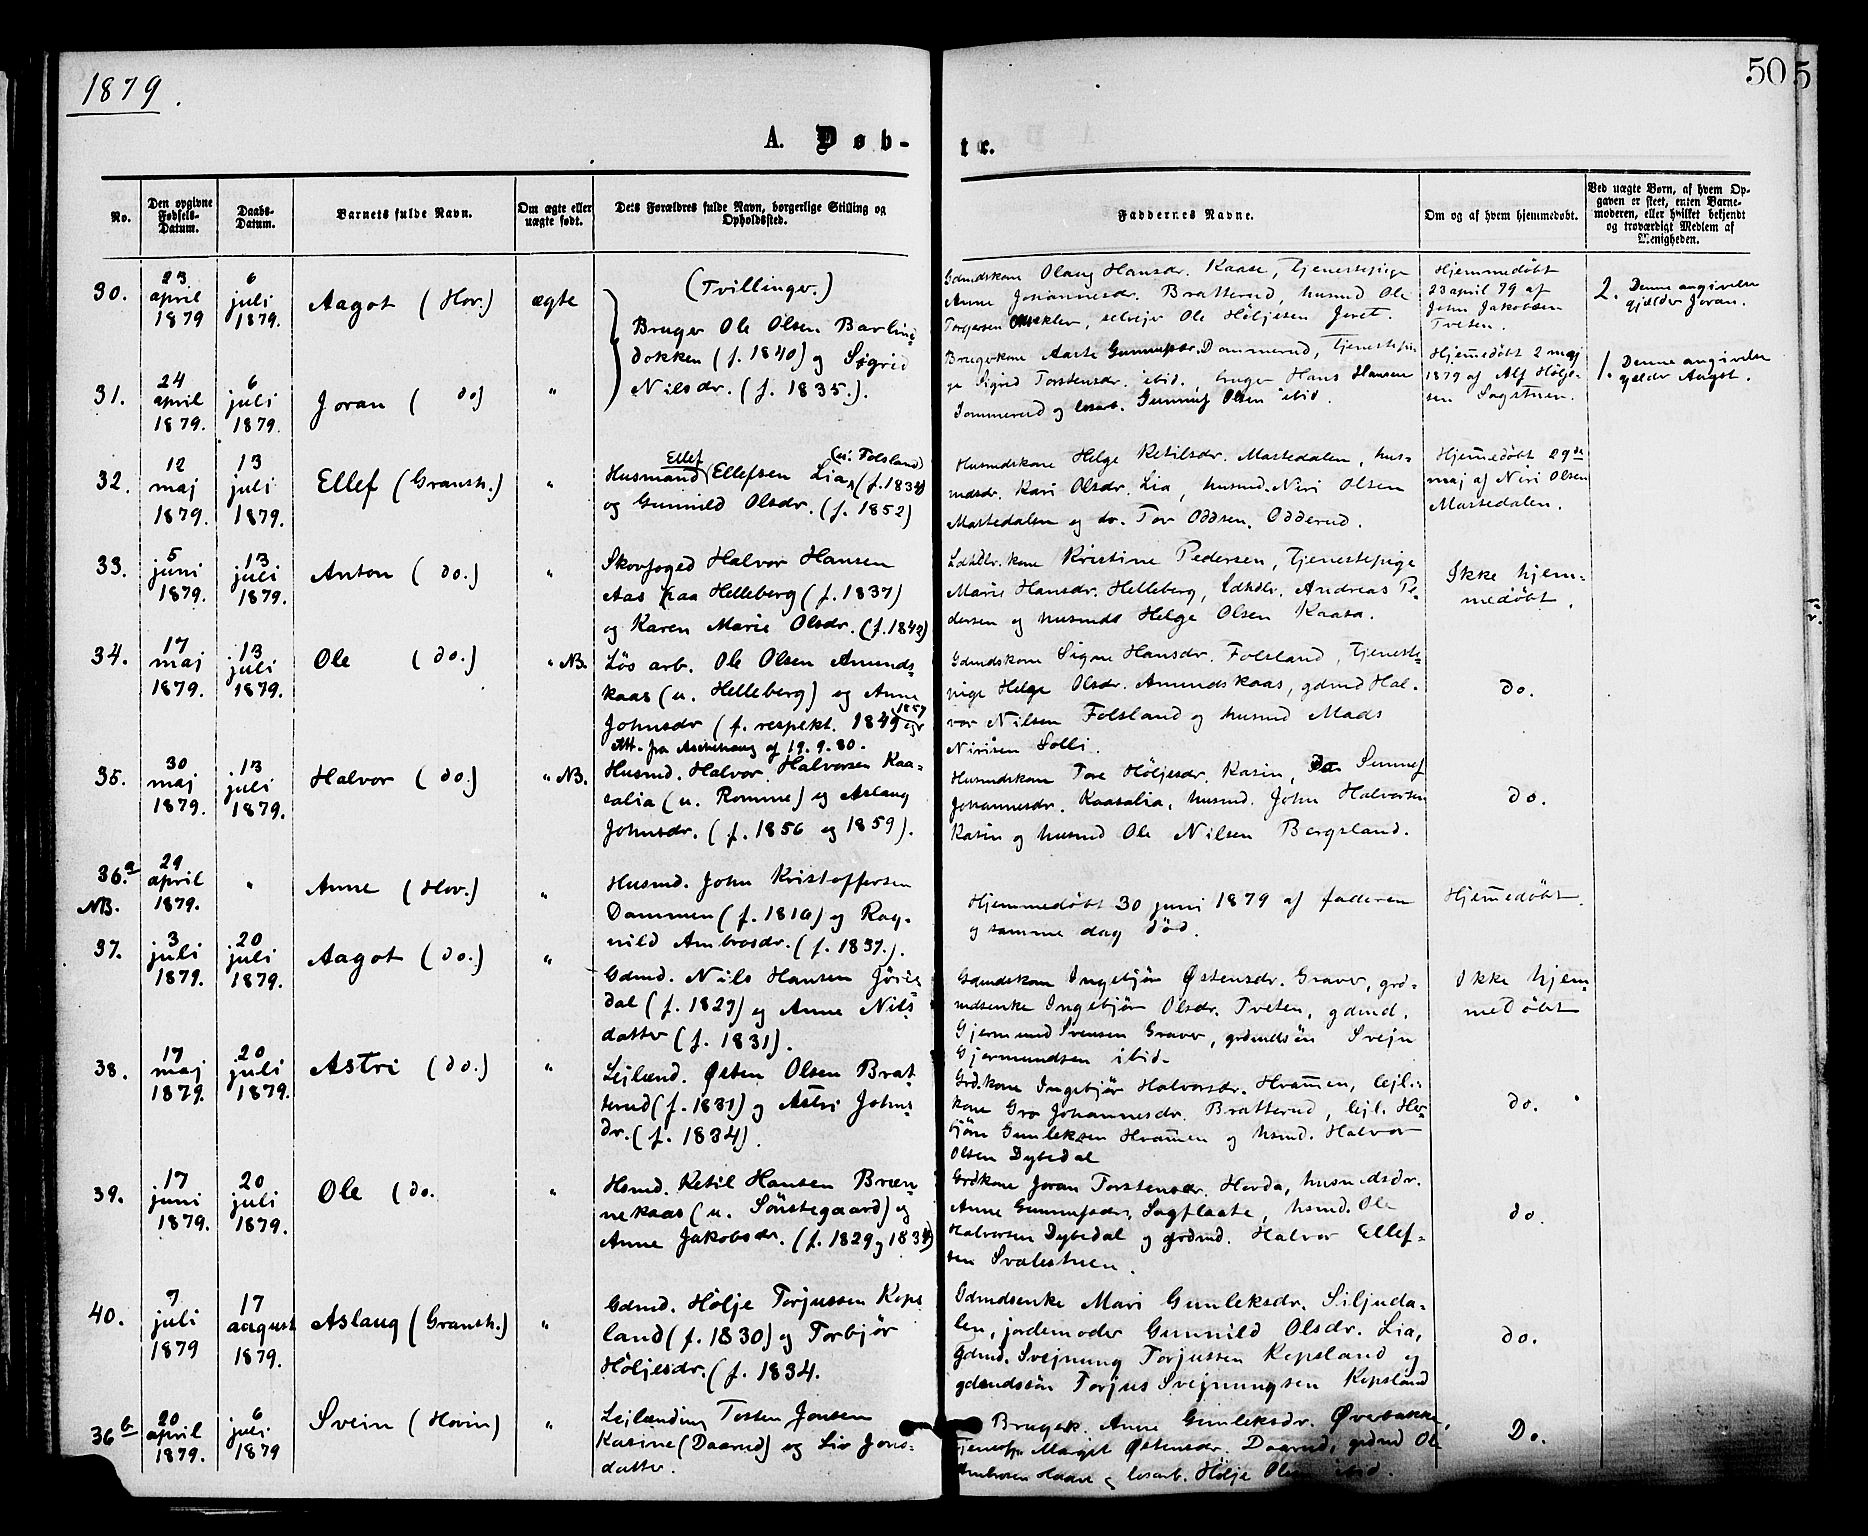 1879.
50
5
A. Døb-
te.
No.
Den opgivne Fødsels-Datum.
Daabs-Datum.
Barnets fulde Navn.
Om ægte eller uægte født.
Dets Forældres fulde Navn, borgerlige Stilling og Opholdssted.
Faddernes Navne.
Om og af hvem hjemmedøbt.
Ved uægte Børn, af hvem Op-
gaven er skeet, enten Barne-
moderen, eller hvilket bekjendt
og troværdigt Medlem af
Menigheden.
30.
23 april 1879
6 juli 1879.
Aagot (Hov.)
ægte
(Tvillinger.)
Bruger Ole Olsen Barlin-
dokken (f. 1840) og Sigrid
Nilsdr. (f. 1835.).
Gdmdskone Olaug Hansdr. Kaase, tjenestepige
Anne Johannesdr. Bratterud, husmd Ole
Torgersen klev, selvejer Ole Höljesen Jeret.
Hjemmedöbt
23 april 79 af
John Jakobsen
Tveten.
2. Denne angivelse
gjælder Joran.
31.
24 april 1879.
6 juli 1879.
Joran ( do)
"
Brugerkone Aaste Gunnufsdr. Dommerud, tjenestepi-
ge Sigrid Torstensdr. ibid., bruger Hans Hansen
Dommerud og losarb. Gunnuf Olsen ibid.
Hjemmedöbt 2 maj
1879 af Alf Hölje-
sen Sagstuen.
1. Denne angivelse
gjælder Aagot.
32.
12 maj 1879.
13 juli 1879.
Ellef (Gransh.)
"
Husmand Ellef Ellefsen Lia (u. Folsland) (f. 1834)
og Gunnild Olsdr. (f. 1852)
Husmdskone Helge Ketilsdr. Mastedalen, hus-
mdsdr. Kari Olsdr. Lia, husmd. Niri Olsen
Mastedalen og do. Tor Oddsen Odderud.
Hjemmedöbt 29de
maj af Niri Olsen
Mastedalen.
33.
5 juni 1879.
13 juli 1879.
Anton (do.)
"
Skovfoged Halvor Hansen
Aas paa Helleberg (f. 1837)
og Karen Marie Olsdr. (f. 1842)
Ldhdlr. kone Kristine Pedersen, tjenestepige
Marie Hansdr. Helleberg, Ldhdlr. Andreas Pe-
dersen og husmds Helge Olsen Kaasa.
Ikke hjem-
medöbt.
34.
17 maj 1879.
13 juli 1879.
Ole (do.)
" NB.
Løs arb. Ole Olsen Amunds-
kaas (u. Helleberg) og Anne
Johnsdr (f. respekt. 1849 og 1857
Att. fra Aschehoug af 19.9.80.
Gdmdskone Signe Hansdr. Folsland, tjeneste-
pige Helge Olsdr. Amundskaas, gdmd Hal-
vor Nilsen Folsland og husmd Mads
Nirisen Solli.
do.
35.
30 maj 1879.
13 juli 1879.
Halvor (do.)
" NB.
Husmd. Halvor Halvorsen Kaa-
salia (u. Romme) og Aslaug
Johnsdr. (f. 1856 og 1859).
Husmdskone Tore Höljesdr. Kasin, Sunnef
Johannesdr. Kaasalia, husmd. John Halvorsen
Kasin og husmd Ole Nilsen Bergsland.
do.
36.a
NB.
29 april 1879.
"
Anne (Hov.)
"
Husmd. John Kristoffersen
Dammen (f. 1810) og Rag-
nild Ambrosdr. (f. 1837.).
Hjemmedöbt 30 juni 1879 af faderen
og samme dag död.
Hjemmedöbt.
37.
3 juli 1879.
20 juli 1879.
Aagot (do.)
"
Gdmd. Nils Hansen Jöris-
dal (f. 1827) og Anne Nils-
datter (f. 1831).
Gdmdskone Ingebjör Østensdr. Graver, grd-
mdsenke Ingebjör Olsdr. Tveten, gdmd.
Gjermund Svensen Graver, grdmdsön Svejn
Gjermundsen ibid.
Ikke hjem-
medöbt
38.
17 maj 1879.
20 juli 1879.
Astri (do.)
"
Lejlænd. Østen Olsen Brat-
terud (f. 1831) og Astri Johns-
dr. (f. 1834).
Grd.kone Ingebjör Halvorsdr. Hvammen, lejl.-
kone Gro Johannesdr. Bratterud, lejl. Her-
björn Gunleksen Hvammen og hsmd. Halvor
Olsen Dybedal
do.
39.
17 juni 1879.
20 juli 1879.
Ole (do.
"
Hsmd. Ketil Hansen Bræn-
nekaas (u. Sönstegaard) og
Anne Jakobsdr. (f. 1829 og 1834)
Grdkone Joran Torstensdr. Hovda, husmdsdr.
Anne Gunnufsdr. Sagflaate, hsmd. Ole
Halvorsen Dybedal og grdmd. Halvor Ellef-
sen Svalestuen.
do.
40.
7 juli 1879
17 august 1879.
Aslaug (Gransh.)
"
Gdmd. Hölje Torjussen Keps-
land (f. 1830) og Torbjör
Höljesdr. (f. 1834.
Gdmdsenke Mari Gunleksdr. Siljuda-
len, jordemoder Gunnild Olsdr. Lia,
Gdmd. Svejnung Torjussen Kepsland og
gdmdssön Torjus Svejnungsen Kepsland
do.
36b
20 april 1879.
6 juli 1879
Svein (Hovin)
"
Lejlænding Tosten Jonsen
Kasine (Daarud) og Liv Jons-
datter.
Brugek. Anne Gunleksdr. Øvebakke,
tjenestp. Margit Østensdr. Daarud, grdmd Ole
Ambrosen Haave og losarb. Hölje Olsen ibid.
Do.